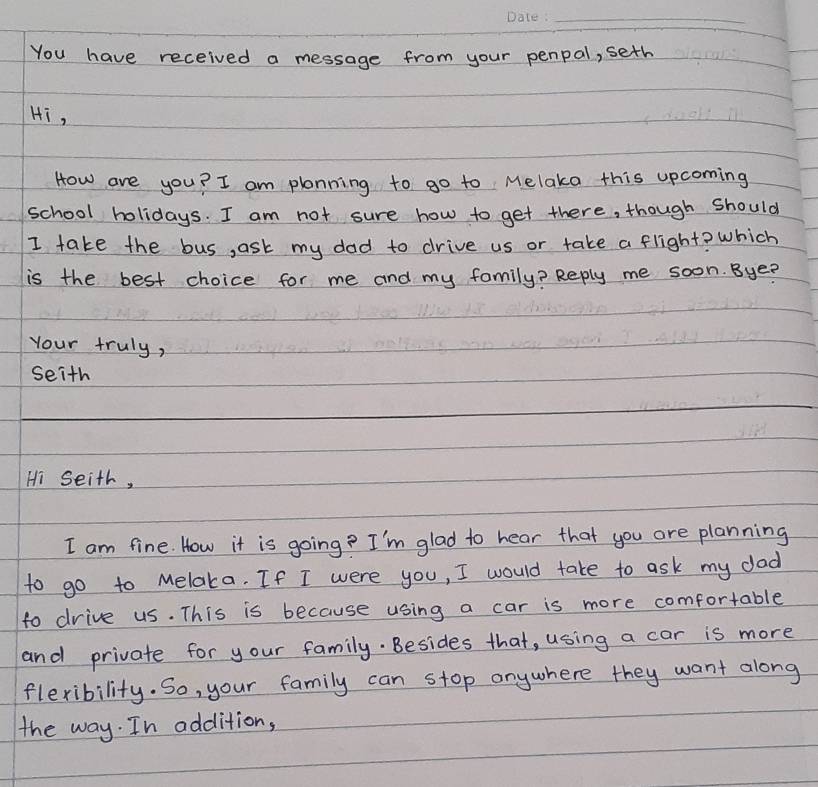 Date :
You have received a message from your penpal, seth
Hi,
How are you? I am planning to go to Melaka this upcoming
school holidays. I am not sure how to get there, though should
I take the bus, ask my dad to drive us or take a flight? which
is the best choice for me and my family? Reply me soon. Bye?
Your truly,
Seith
Hi Seith,
I am fine. How it is going? I'm glad to hear that you are planning
to go to Melaka. If I were you, I would take to ask my dad
to drive us. This is because using a car is more comfortable
and private for your family. Besides that, using a car is more
flexibility. So, your family can stop anywhere they want along
the way. In addition,